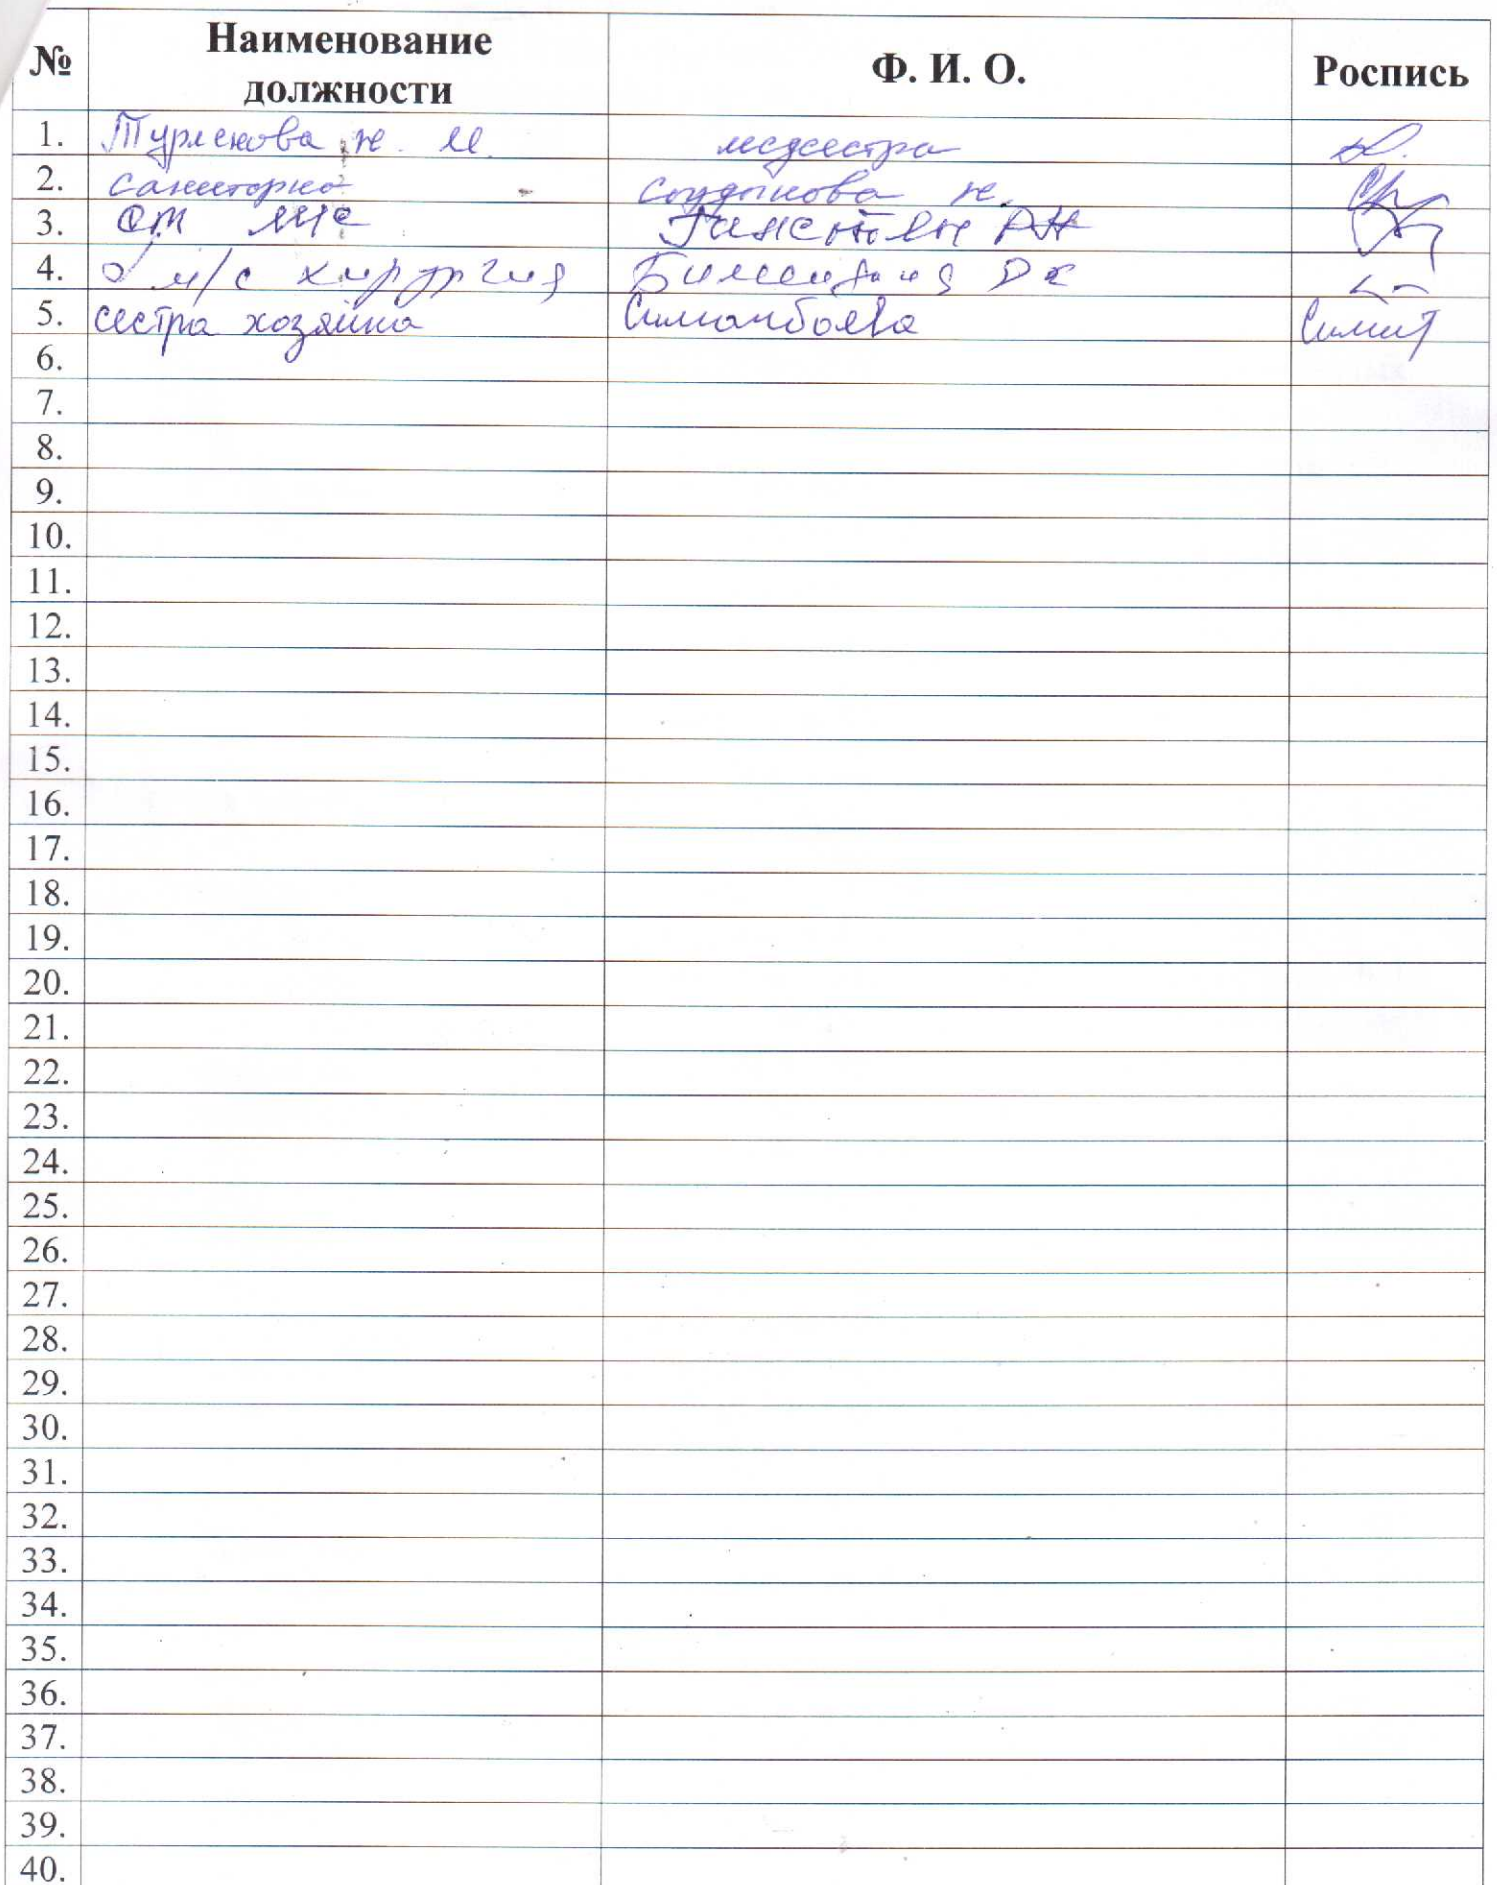 № Наименование должности Ф. И. О. Роспись
1. Турленова Н. М. медсестра
2. санитарка Сыздыкова Н.
3. ст м/с
4. м/с хирургия
5. сестра хозяйка Симанбаева
6.
7.
8.
9.
10.
11.
12.
13.
14.
15.
16.
17.
18.
19.
20.
21.
22.
23.
24.
25.
26.
27.
28.
29.
30.
31.
32.
33.
34.
35.
36.
37.
38.
39.
40.